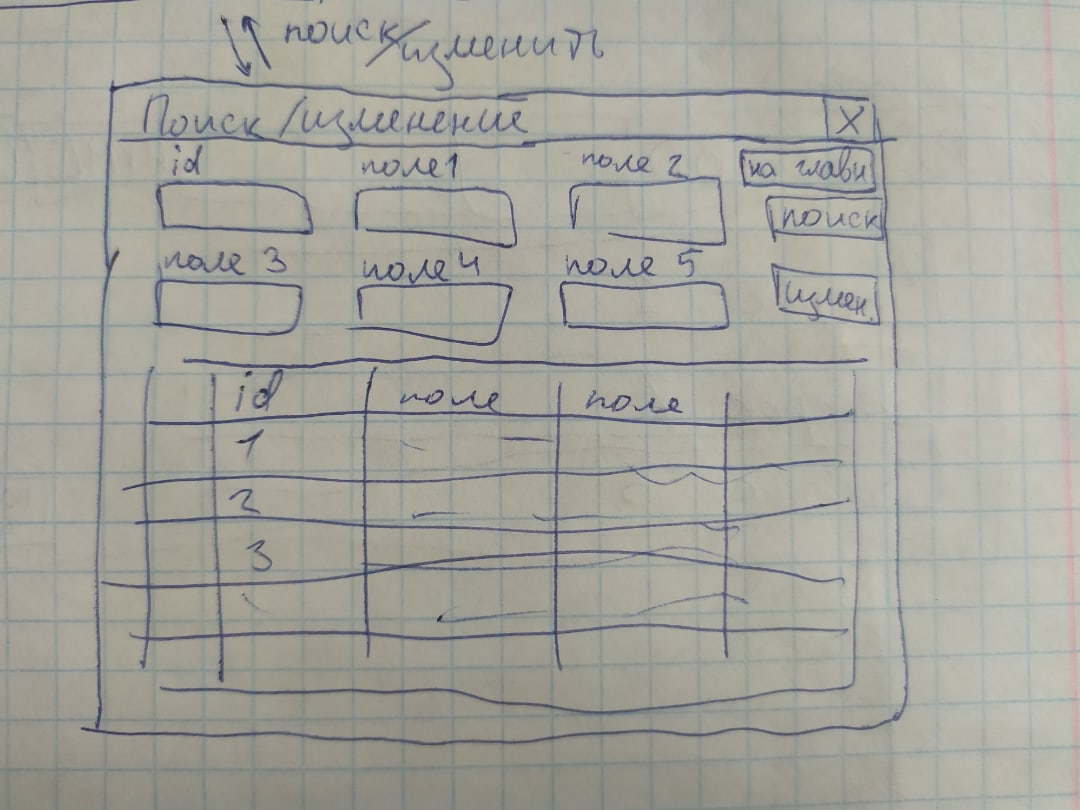 поиск/изменить
Поиск/изменение X
id поле1 поле 2 на главн
поиск
поле 3 поле 4 поле 5
измен.
id поле поле
1
2
3